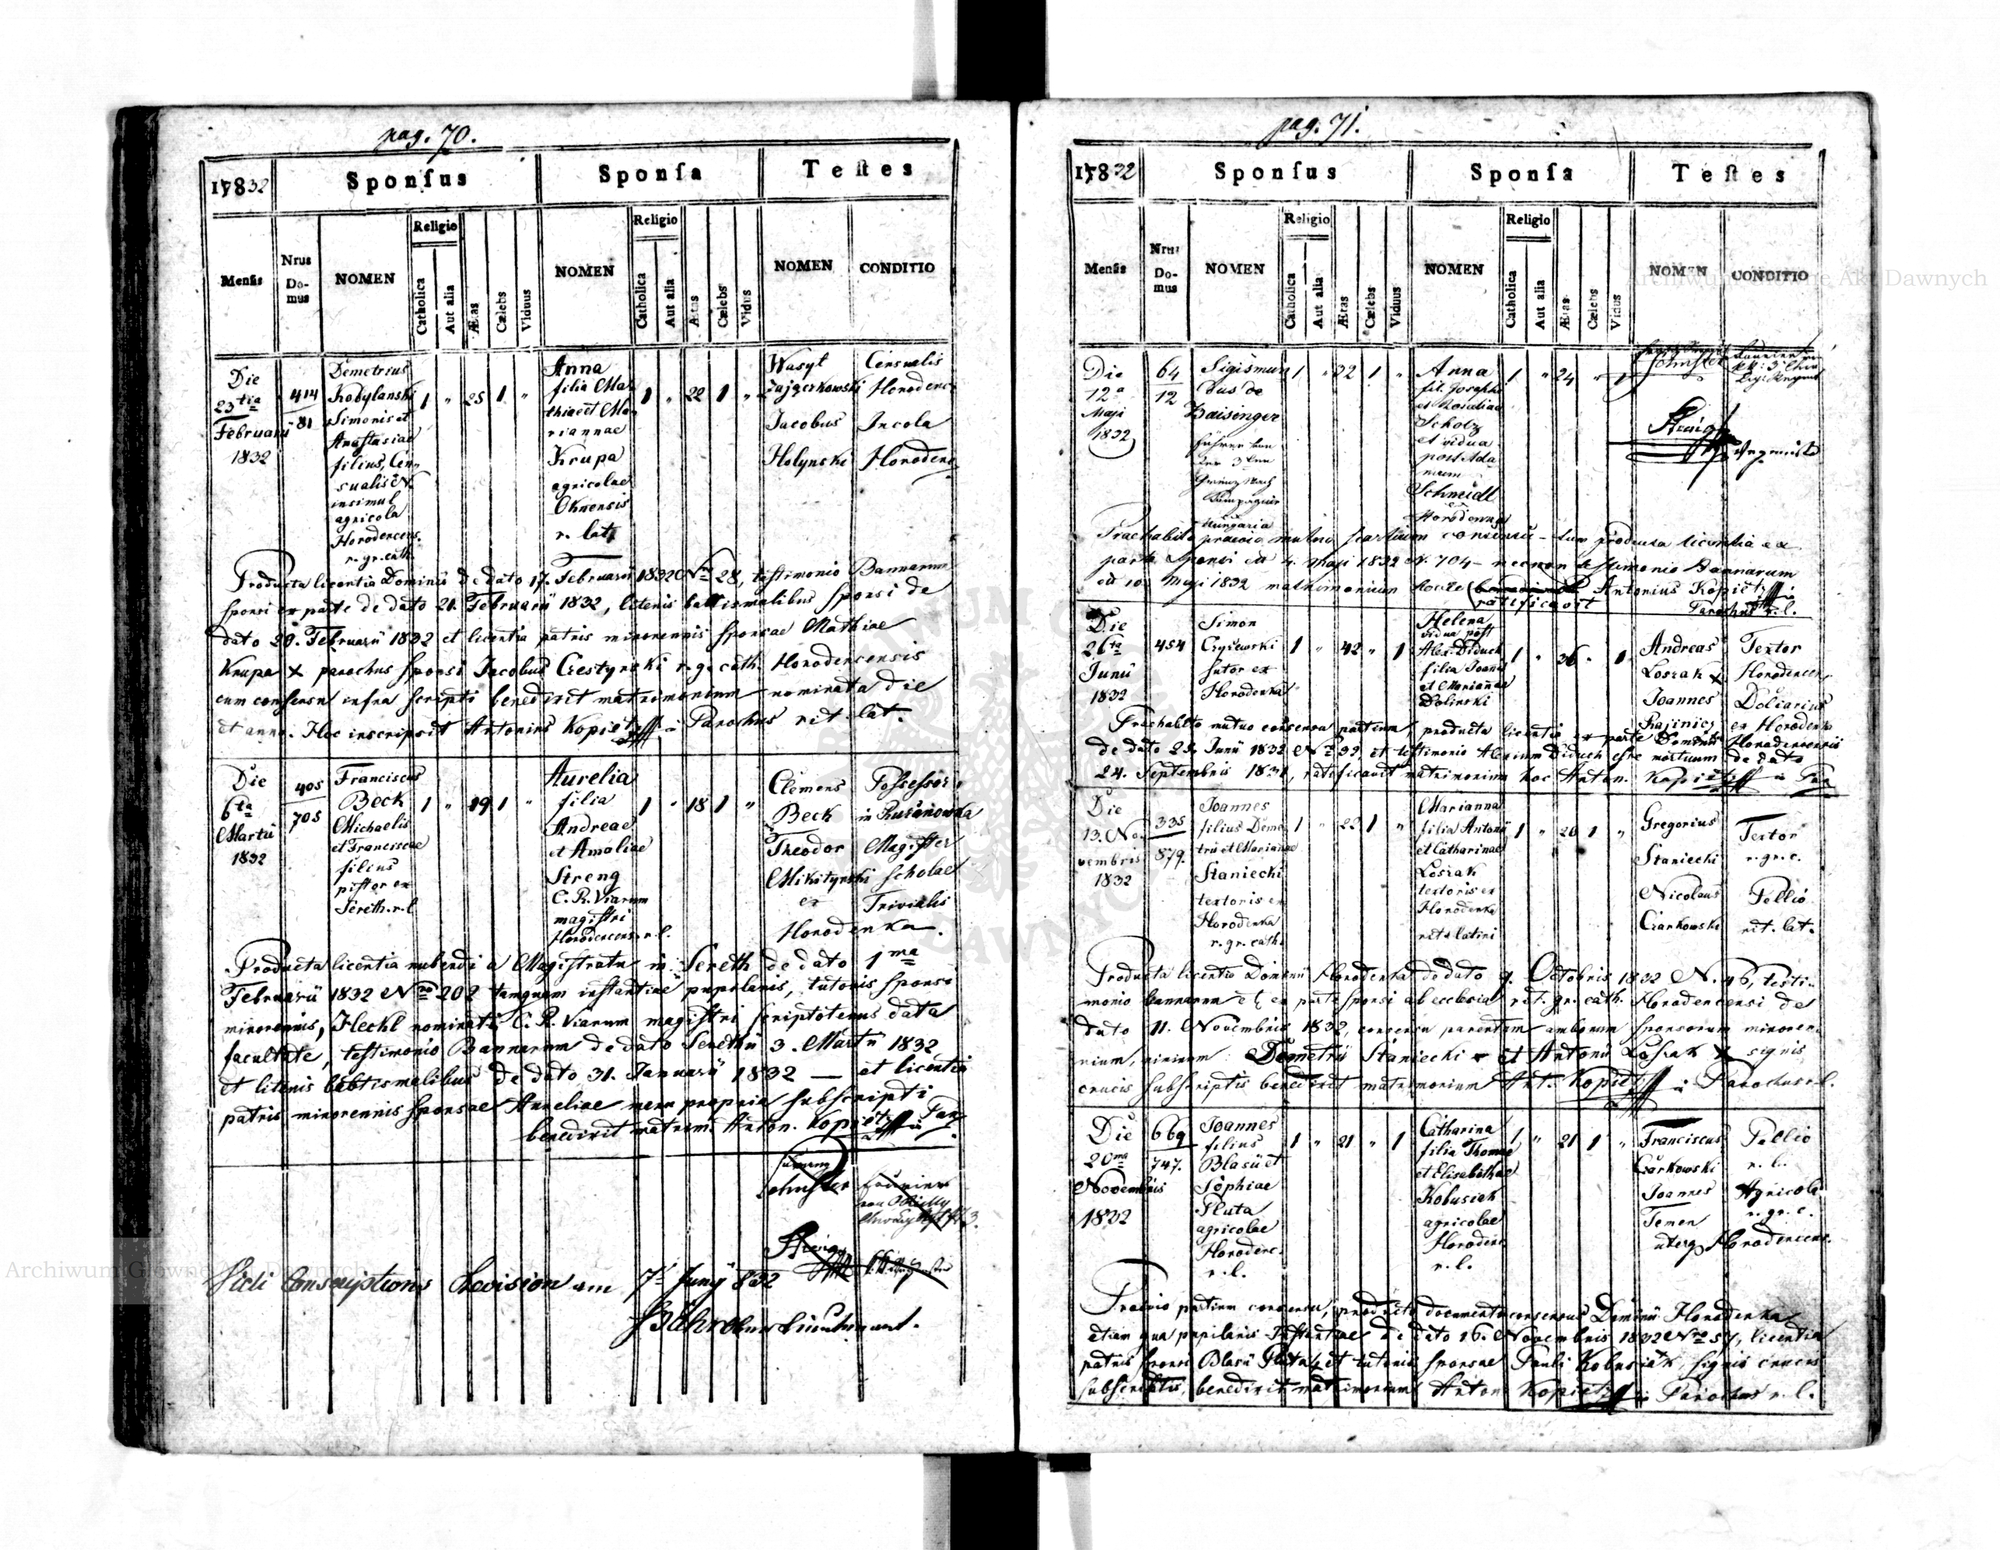 pag. 70.
17832
Sponsus
Sponsa
Testes
Mensis
Nrus Domus
NOMEN
Religio
Catholica
Aut alia
Ætas
Cælebs
Viduus
NOMEN
Religio
Catholica
Aut alia
Ætas
Cælebs
Vidua
NOMEN
CONDITIO
Die
23tia
Februarii
1832
414
81
Demetrius
Kodylanski
Simonis et
Anastasiae
filius, Cen-
sualis et
insimul
agricola
Horodencens.
r. gr. cath.
1 " 25 1 "
Anna
filia Ma-
thiae et Ma-
riannae
Krupa
agricolae
Oknensis
r. lat.
1 " 22 1 "
Wasyl
Zajączkowski
Jacobus
Holynski
Censualis
Horodenc.
Incola
Horodenc.
Producta licentia Dominii de dato 17. Februarii 1832 Nro 28, testimonio Bannorum
sponsi ex parte de dato 21. Februarii 1832, literis baptismalibus sponsi de
dato 20. Februarii 1832 et licentia patris minorennis sponsae Mathiae
Krupa x parochus sponsi Jacobus Czestynski r. gr. cath. Horodencensis
cum consensu infra scripti benedixit matrimonium nominata die
et anno. Hoc inscripsit Antonius Kopietz Parochus rit. lat.
Die
6ta
Martii
1832
405
705
Franciscus
Beck
Michaelis
et Franciscae
filius
pistor ex
Sereth. r. l.
1 " 19 1 "
Aurelia
filia
Andreae
et Amaliae
Streng
C. R. Viarum
magistri
Horodencens. r. l.
1 " 18 1 "
Clemens
Beck
Theodor
Mikitynski
ex
Horodenka.
Possessor
in Rusanowka
Magister
Scholae
Trivialis
Producta licentia nubendi a Magistratu in Sereth de dato 1ma
Februarii 1832 Nro 202 tamquam instantiae pupilaris, tutoris sponsi
minorennis, Heckl nominati, C. R. Viarum magistri scriptotenus data
facultate, testimonio Bannorum de dato Serethii 3. Martii 1832
et literis babtismalibus de dato 31. Januarii 1832 — et licentia
patris minorennis sponsae Aureliae manu propria subscripti
benedixit matrim. Anton. Kopietz Par.
Streng
Conscriptions Revision am 7t Juny 832
pag. 71.
17832
Sponsus
Sponsa
Testes
Mensis
Nrus Domus
NOMEN
Religio
Catholica
Aut alia
Ætas
Cælebs
Viduus
NOMEN
Religio
Catholica
Aut alia
Ætas
Cælebs
Viduus
NOMEN
CONDITIO
Die
12a
Maji
1832
64
12
Sigismun-
dus de
Baisinger
Hungaria
1 " 32 1 "
Anna
fil. Josephi
Scholz
et vidua
post Ada-
mum
Schmidl
1 " 24 " 1
Streng
Praehabito praevio mutuo partium consensu — tum producta licentia ex
parte sponsi dd 4. Maji 1832 N. 704 — necnon testimonio Bannorum
dd 10. Maji 1832 matrimonium hocce ratificavit Antonius Kopietz
Parochus r. l.
Die
26ta
Junii
1832
454
Simon
Czyżewski
sutor ex
Horodenka
1 " 42 " 1
Helena
vidua post
Alex. Diduch
filia Joann.
et Mariannae
Dolinski
1 " 36 " 1
Andreas
Loszak x
Joannes
Textor
Horodencen.
Doliarius
ex Horodenka
Praehabito mutuo consensu partium, producta licentia ex parte Dominii Horodencensis
de dato 23. Junii 1832 Nro 32, et testimonio Alexium Diduch esse mortuum de dato
24. Septembris 1831, ratificavit matrimonium hoc Anton. Kopietz Par.
Die
13. No-
vembris
1832
335
879.
Joannes
filius Deme-
trii et Mariannae
Staniecki
textoris ex
Horodenka
r. gr. cath.
1 " 22 1 "
Marianna
filia Antonii
et Catharinae
Loszak
textoris ex
Horodenka
ritus latini
1 " 20 1 "
Gregorius
Staniecki
Nicolaus
Ciarkowski
Textor
r. gr. c.
Pellio
rit. lat.
Producta licentia Dominii Horodenka de dato 9. Octobris 1832 N. 46, testi-
monio bannorum et ex parte sponsi ab ecclesia rit. gr. cath. Horodencensi de
dato 11. Novembris 1832, consensu parentum amborum sponsorum minoren-
nium, nimirum: Demetrii Staniecki x et Antonii Loszak x signis
crucis subscriptis benedixit matrimonium Ant. Kopietz Parochus r. l.
Die
20ma
Novembris
1832
669
747.
Joannes
filius
Blasii et
Sophiae
Pluta
agricolae
Horodenc.
r. l.
1 " 21 " 1
Catharina
filia Thomae
et Elisabethae
Kobusiak
agricolae
Horodenc.
r. l.
1 " 21 1 "
Franciscus
Ciarkowski
Joannes
Temen
uterq. Horodencens.
Pellio
r. l.
Agricola
r. gr. c.
Praevio partium consensu, producto documento consensus Dominii Horodenka
etiam qua pupilaris Instantiae de dato 16. Novembris 1832 Nro 57, licentia
patris sponsi Blasii Pluta, et tutoris sponsae Pauli Kobusiak, signis crucis
subscriptis, benedixit matrimonium Anton Kopietz Parochus r. l.
Archiwum Główne Akt Dawnych